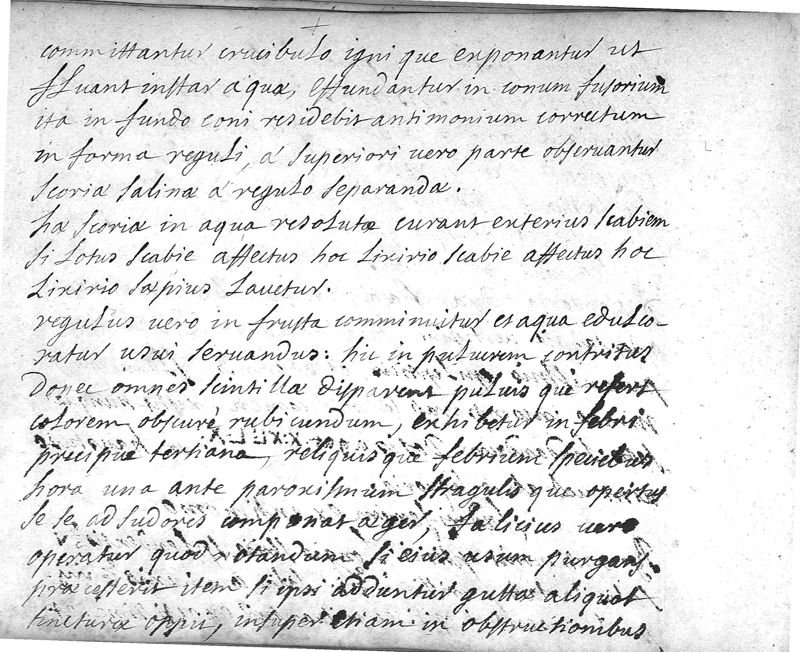 committantur crucibulo igni que exponantur ut
ffluant instar aquæ, effundantur in conum fusorium
ita in fundo coni residebit antimonium correctum
in forma reguli, a superiori vero parte observantur
scoria salina a regulo separanda.
hæ scoriæ in aqua resolutæ curant exterius scabiem
si Lotus scabie affectus hoc Lixivio scabie affectus hoc
Lixivio sæpius Lavetur.
regulus vero in frusta comminuitur et aqua edulco-
ratur usui servandus: hic in pulverem contritus
Donec omnes scintillæ disparent pulvis qui refert
colorem obscure rubicundum, exhibetur in febri
præcipue tertiana, reliquisque febrium speciebus
hora una ante paroxismum stragulis que opertus
se se ad sudores componat æger, falicius vero
operatur quod notandum si eius usum purgans.
præcesserit item si ipsi adduntur guttæ aliquot
tincturæ oppii, insuper etiam in obstructionibus